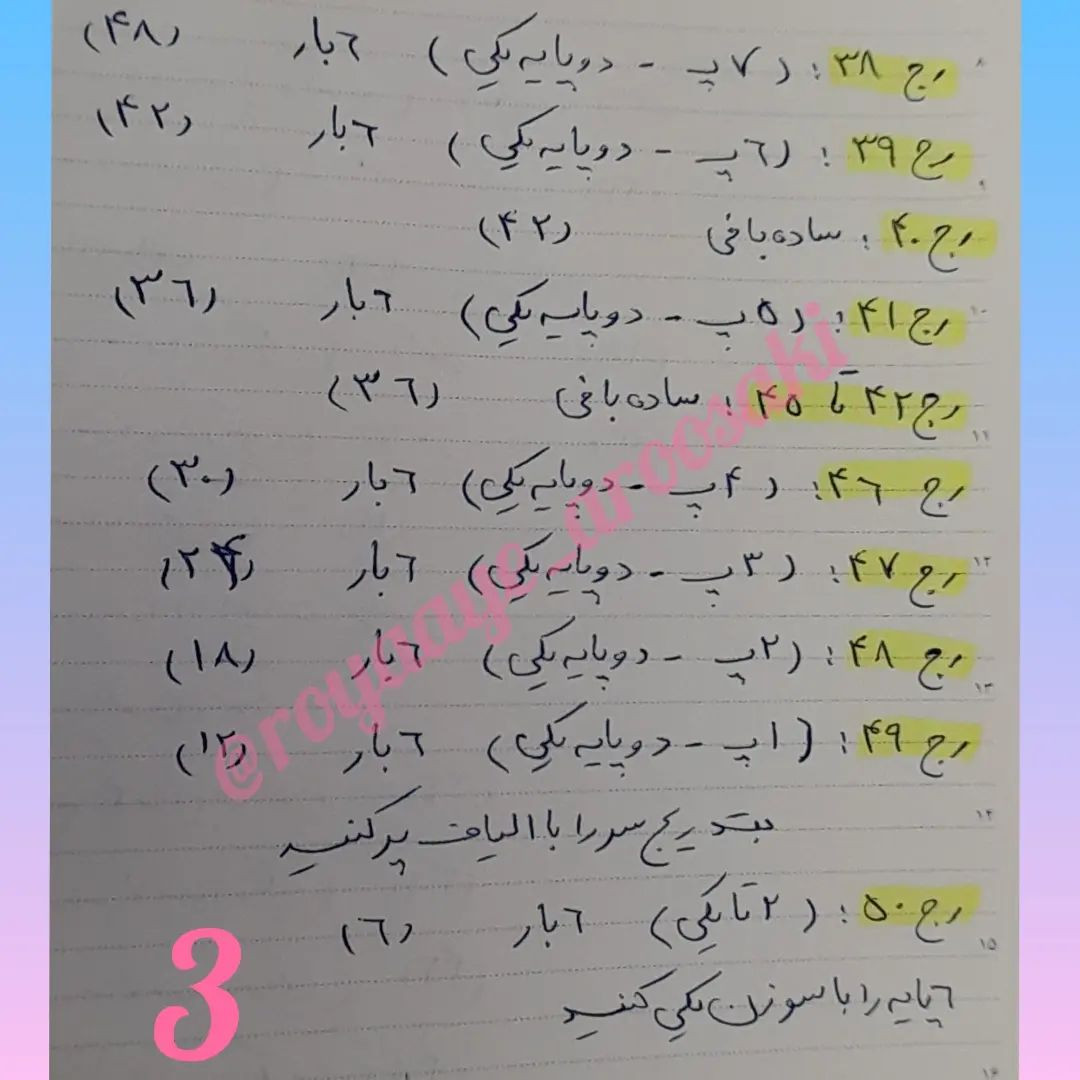 رج ۳۸ : (۷پ - دوپایه یکی) ۶بار (۴۸)
رج ۳۹ : (۶پ - دوپایه یکی) ۶بار (۴۲)
رج ۴۰ : ساده بافی (۴۲)
رج ۴۱ : (۵پ - دوپایه یکی) ۶بار (۳۶)
رج ۴۲ تا ۴۵ : ساده بافی (۳۶)
رج ۴۶ : (۴پ - دوپایه یکی) ۶بار (۳۰)
رج ۴۷ : (۳پ - دوپایه یکی) ۶بار (۲۴)
رج ۴۸ : (۲پ - دوپایه یکی) ۶بار (۱۸)
رج ۴۹ : (۱پ - دوپایه یکی) ۶بار (۱۲)
بتدریج سر را با الیاف پر کنید
رج ۵۰ : (۲ تا یکی) ۶بار (۶)
۶ پایه را با سوزن یکی کنید
@royaaye_aroosaki
3
۸
۹
۱۰
۱۱
۱۲
۱۳
۱۴
۱۵
۱۶